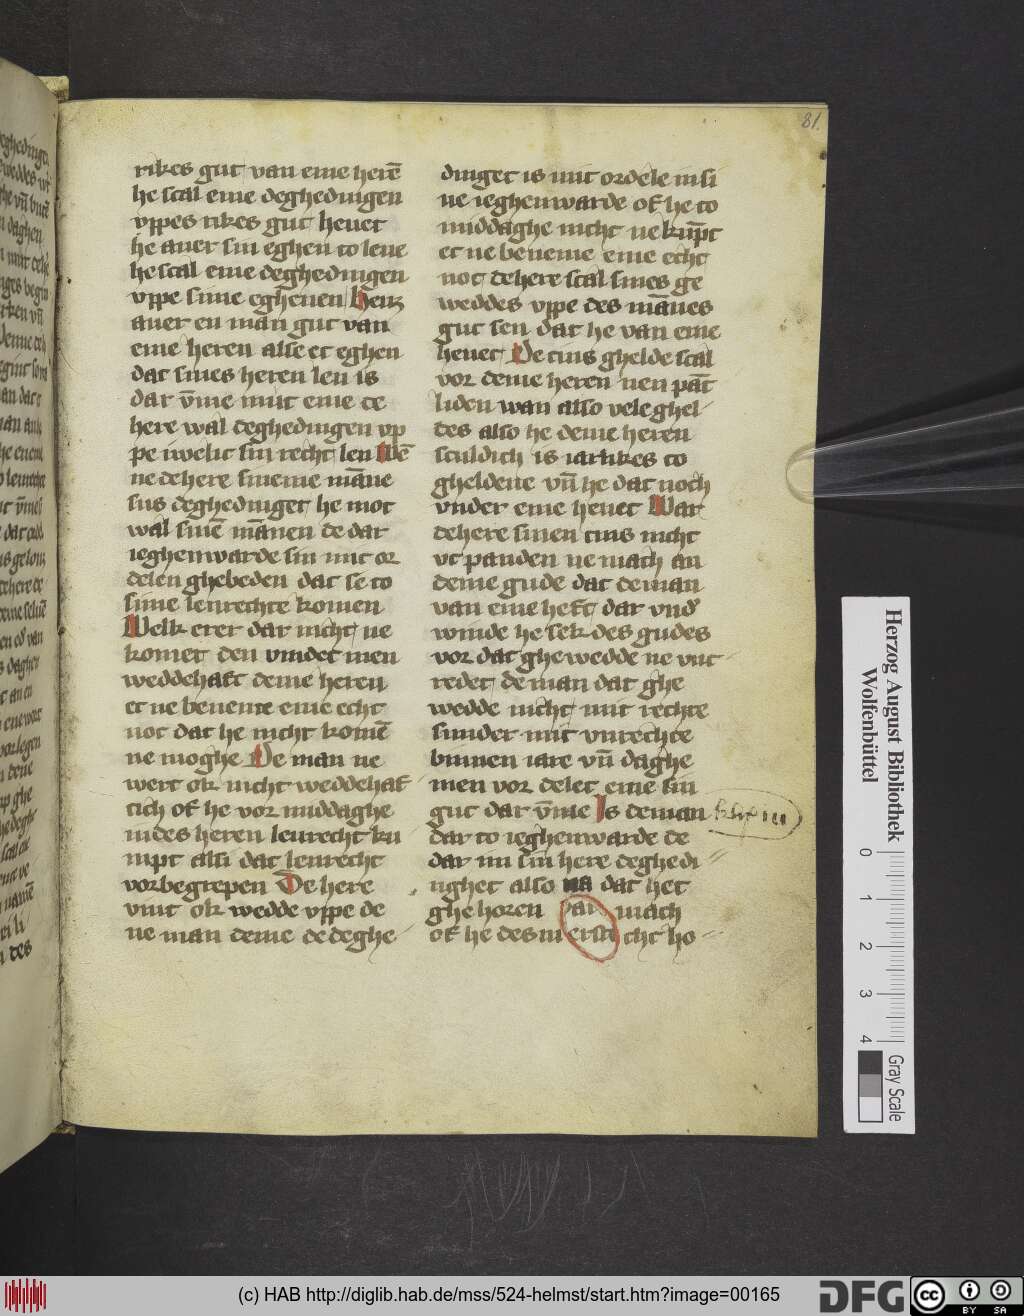 81.
rikes gut van eme herē
he scal eme deghedingen
vppes rikes gut heuet
he auer sin eghen to lene
he scal eme deghedingen
vppe sime eghenen Heuz
auer en man gut van
eme heren alse et eghen
dat sines heren len is
dar v̄me mut eme de
here wal deghedingen vp
pe iwelic sin recht len Wē
ne dehere sineme māne
sus deghedinget he mot
wal sinē mānen de dar
ieghenwarde sin mit or
delen ghebeden dat se to
sime lenrechte komen
Welk erer dar nicht ne
komet den vindet men
weddehaft deme heren
et ne beneme eme echt
not dat he nicht komē
ne moghe De man ne
wert ok nicht weddehaf
tich of he vor middaghe
indes heren lenrecht ku
mpt alsi dat lenrecht
vorbegrepen De here
vint ok wedde vppe de
ne man deme de deghe
dinget is mit ordele in si
ne ieghenwarde of he to
middaghe nicht ne kūpt
et ne beneme eme echt
not dehere scal sines ge
weddes vppe des mānes
gut sen dat he van eme
heuet De tins ghelde scal
vor deme heren nen pāt
liden wan also vele ghel
des also he deme heren
sculdich is iartikes to
gheldene vn̄ he dat noch
vnder eme heuet War
dehere sinen tins nicht
vt panden ne mach an
deme gude dat deman
van eme heft dar vnd'
winde he sek des gudes
vor dat ghewedde ne vnt
redet deman dat ghe
wedde nicht mit rechte
sunder mit vnrechte
binnen iare vn̄ daghe
men vor delet eme sin
gut dar v̄me Is deman
dar to ieghenwarde de
dar im sin here deghedi
nghet also na dat het
ghe horen mach
of he des ni cht ho
Herzog August Bibliothek
Wolfenbüttel
0 1 2 3 4
Gray Scale
(c) HAB http://diglib.hab.de/mss/524-helmst/start.htm?image=00165
DFG
cc BY SA